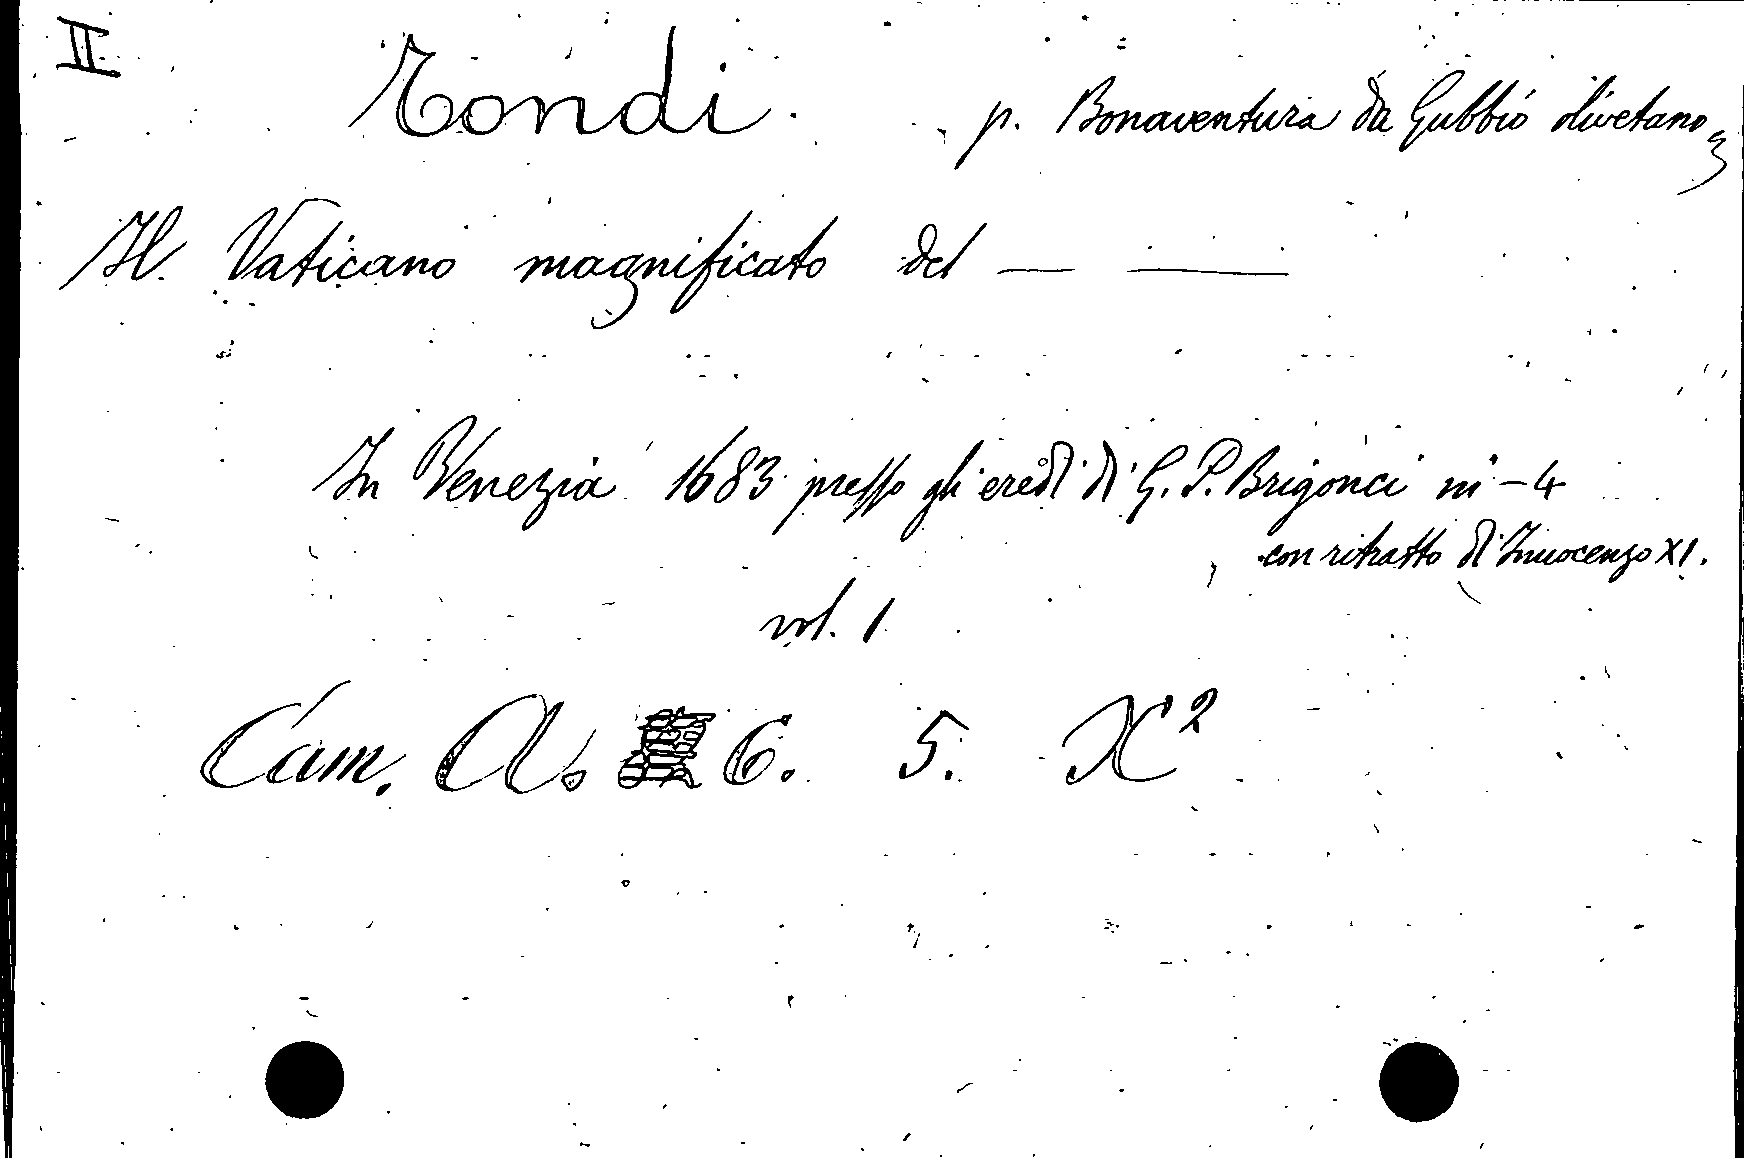 II
Tondi. p. Bonaventura da Gubbio olivetano
Il Vaticano magnificato del — ——
In Venezia 1683 presso gli eredi di G. P. Brigonci in-4
con ritratto di Innocenzo XI.
vol. 1
Cam. A. 6. 5. X²